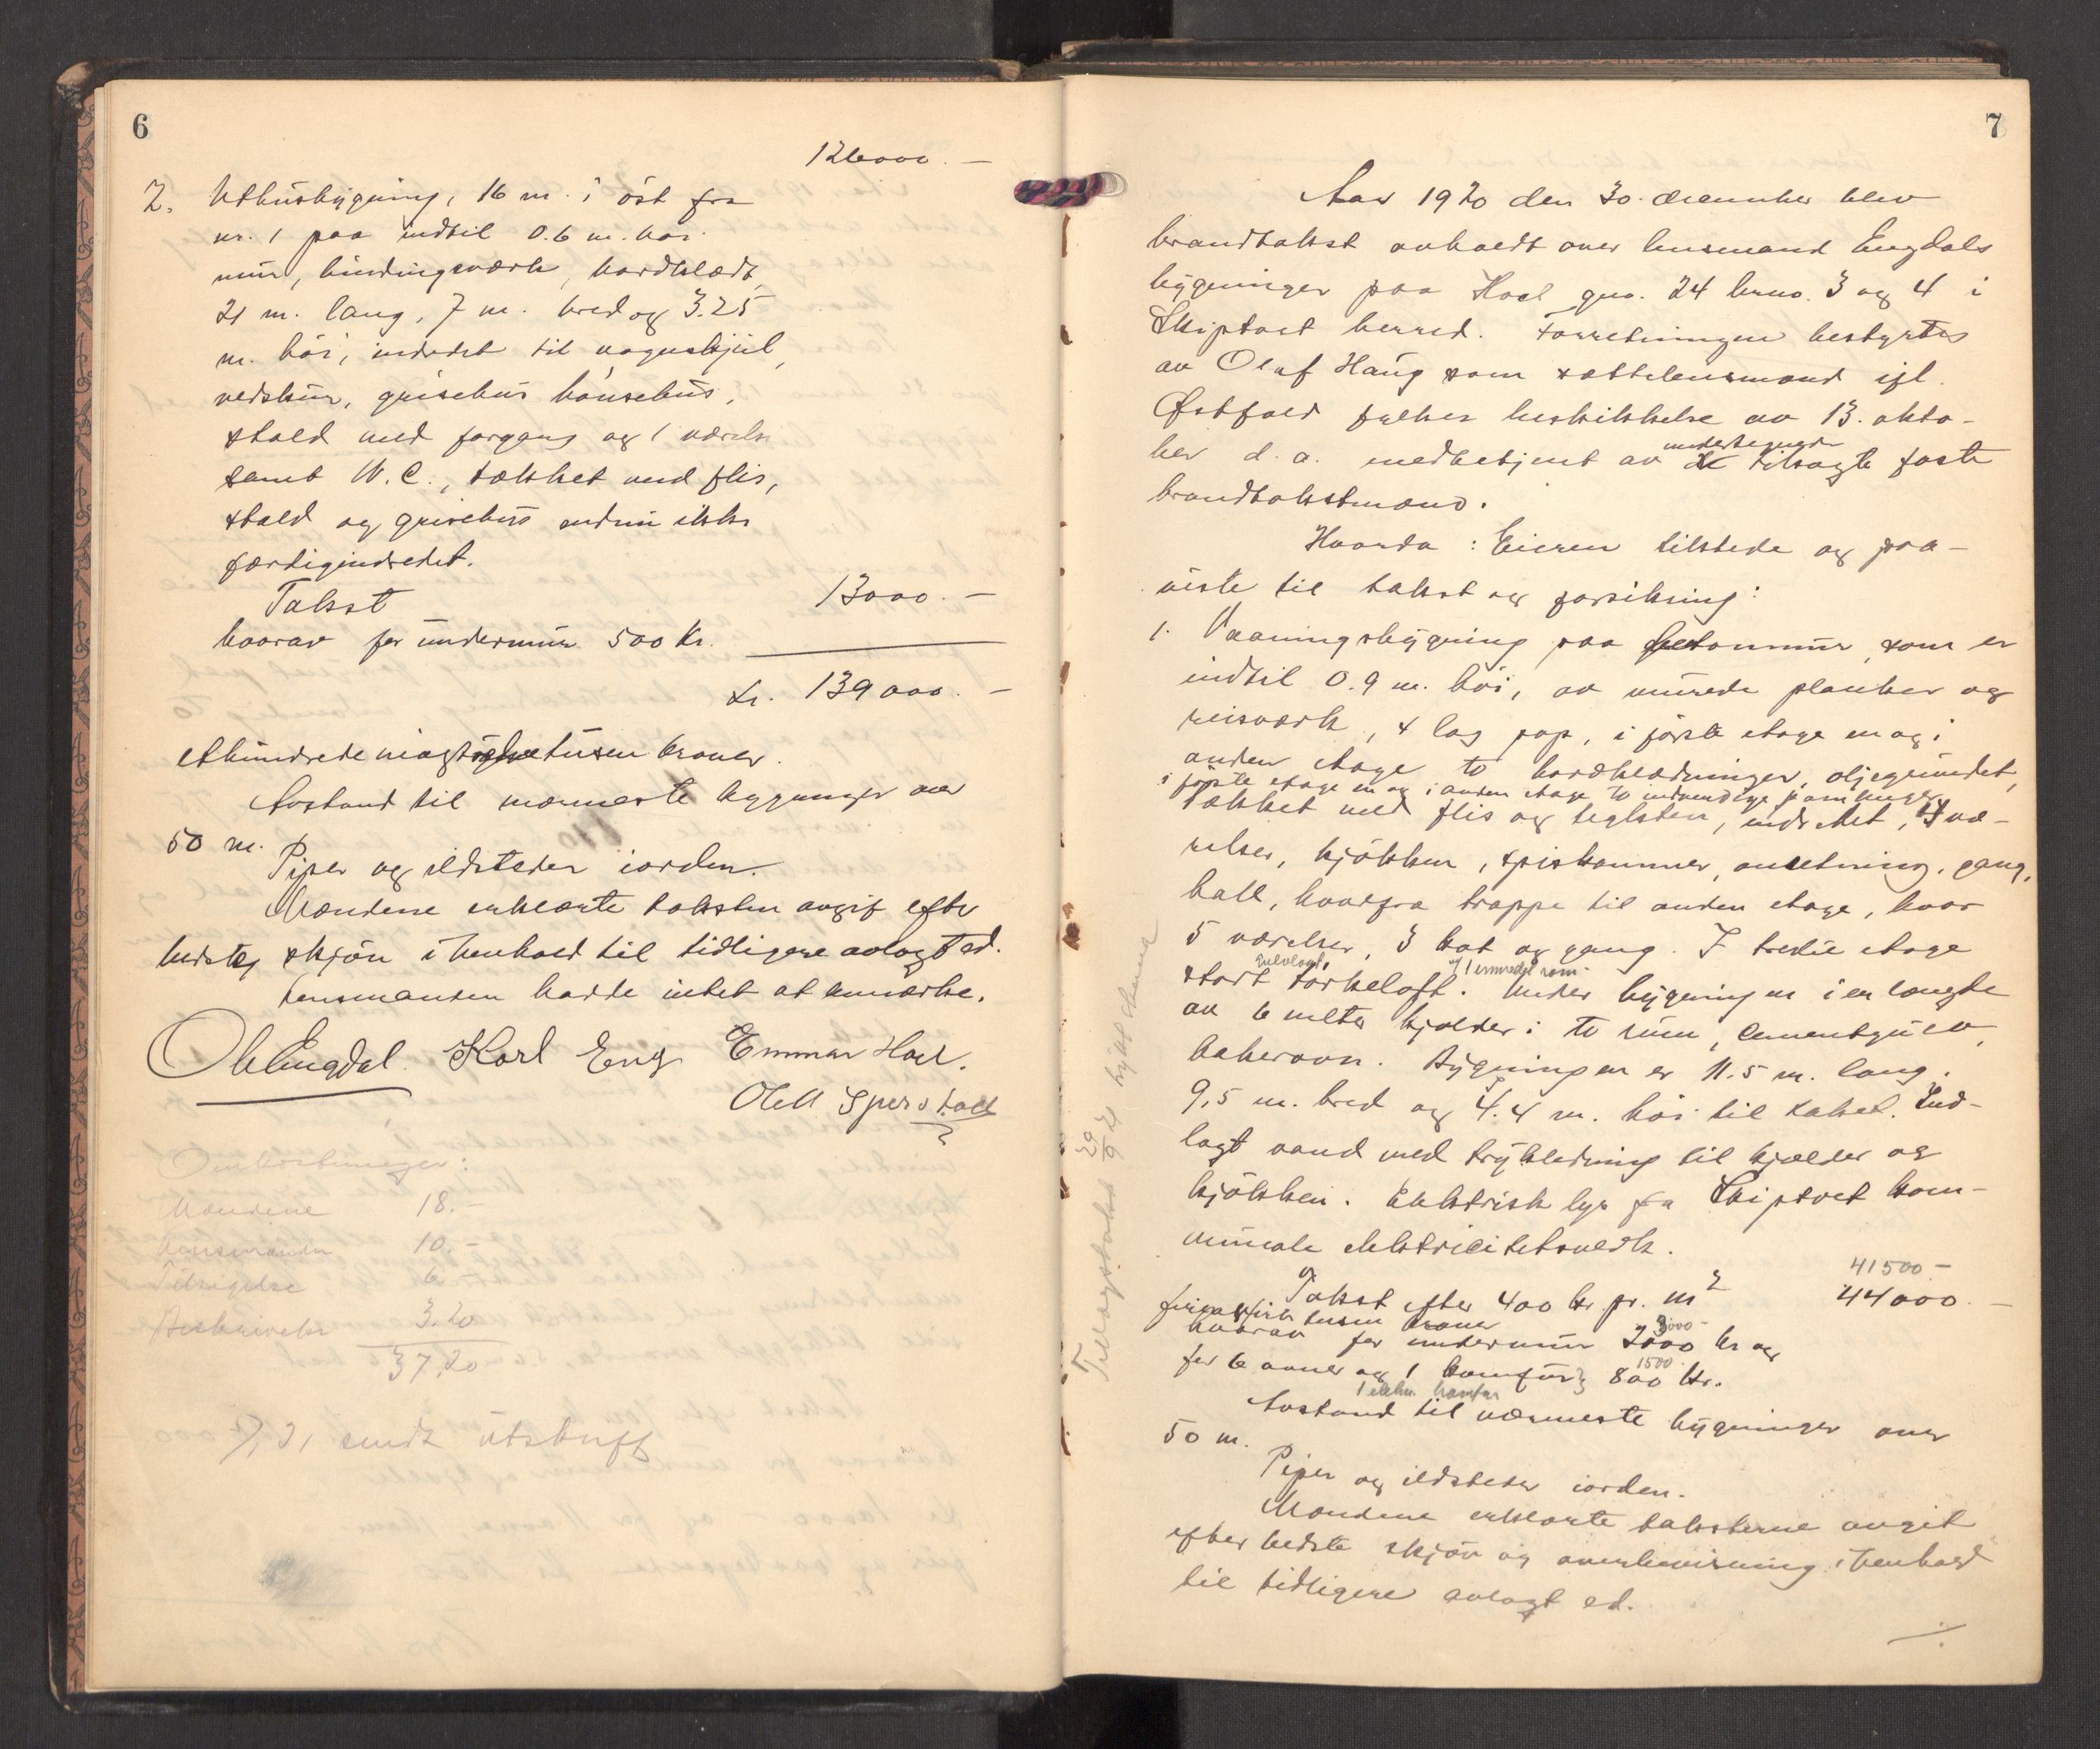 6
126000.—
2. Uthusbygning, 16 m. i öst fra
nr. 1 paa indtil 0.6 m. höi
mur, bindingsværk, bordklædt,
21 m. lang, 7 m. bred og 3.25
m. höi, indredet til vognskjul,
vedskur, grisehus hönsehus,
stald med forgang og 1 værelse
samt W.C., tækket med flis,
stald og grisehus endnu ikke
færdigindredet.
Takst 13000.—
hvorav for undermur 500 kr.
kr. 139000.—
ethundrede og tusen kroner.
Avstand til nærmeste bygninger over
50 m.
Piper og ildsteder iorden.
Mændene erklærte taksten avgit efter
bedste skjön i henhold til tidligere avlagt ed.
Lensmanden hadde intet at bemærke.
O Engdal. Karl Eng Emmar Hoel.
Omkostninger:
Mændene 18.—
Lensmanden 10.—
Tilsigelse 6
Avskrivelse 3.20
37.20
7/1 21 sendt utskrift
7
Aar 1920 den 30. december blev
brandtakst avholdt over lensmand Engdals
bygninger paa Hoel gno. 24 brno. 3 og 4 i
Skiptvet herred. Forretningen bestyrtes
av Olaf Haug som sættelensmand ifl.
Østfold fylkes beskikkelse av 13. okto-
ber d.a. medbetjent av undertegnede tilsagte faste
brandtakstmænd.
Hvorda: Eieren tilstede og paa-
viste til takst og forsikring:
1. Vaaningsbygning paa betonmur, som er
indtil 0.9 m. höi, av murede planker og
reisværk, 4 lag pap, i förste etage en og i
anden etage to bordklædninger, oljegrundet,
i förste etage en og i anden etage to indvendige paneler
tækket med flis og teglsten, indredet, 4 væ-
relser, kjökken, spiskammer, anretning, gang,
hall, hvorfra trappe til anden etage, hvor
5 værelser, 3 kot og gang. I tredie etage
gulvlagt, og 1 innredet rom.
stort törkeloft. Under bygningen i en længde
av 6 meter kjælder i to rum, cementgulv,
bakerovn. Bygningen er 11.5 m. lang.
9,5 m. bred og 4.4 m. höi til taket. Ind-
lagt vand med trykledning til kjælder og
kjökken. Elektrisk lys fra Skiptvet kom-
munale elektricitetsverk.
41500.—
Takst efter 400 kr. pr. m² 44000.—
firti fire tusen kroner
3000.—
hvorav for undermur 2000 kr og
1500.
for 6 ovner og 1 komfur 800 kr.
1 elektr. komfur
Avstand til nærmeste bygninger over
50 m.
Piper og ildsteder iorden.
Mændene erklærte taksterne avgit
efter bedste skjön og overbevisning i henhold
til tidligere avlagt ed.
./.
Tillægstakst 29/9 24 nytt skema